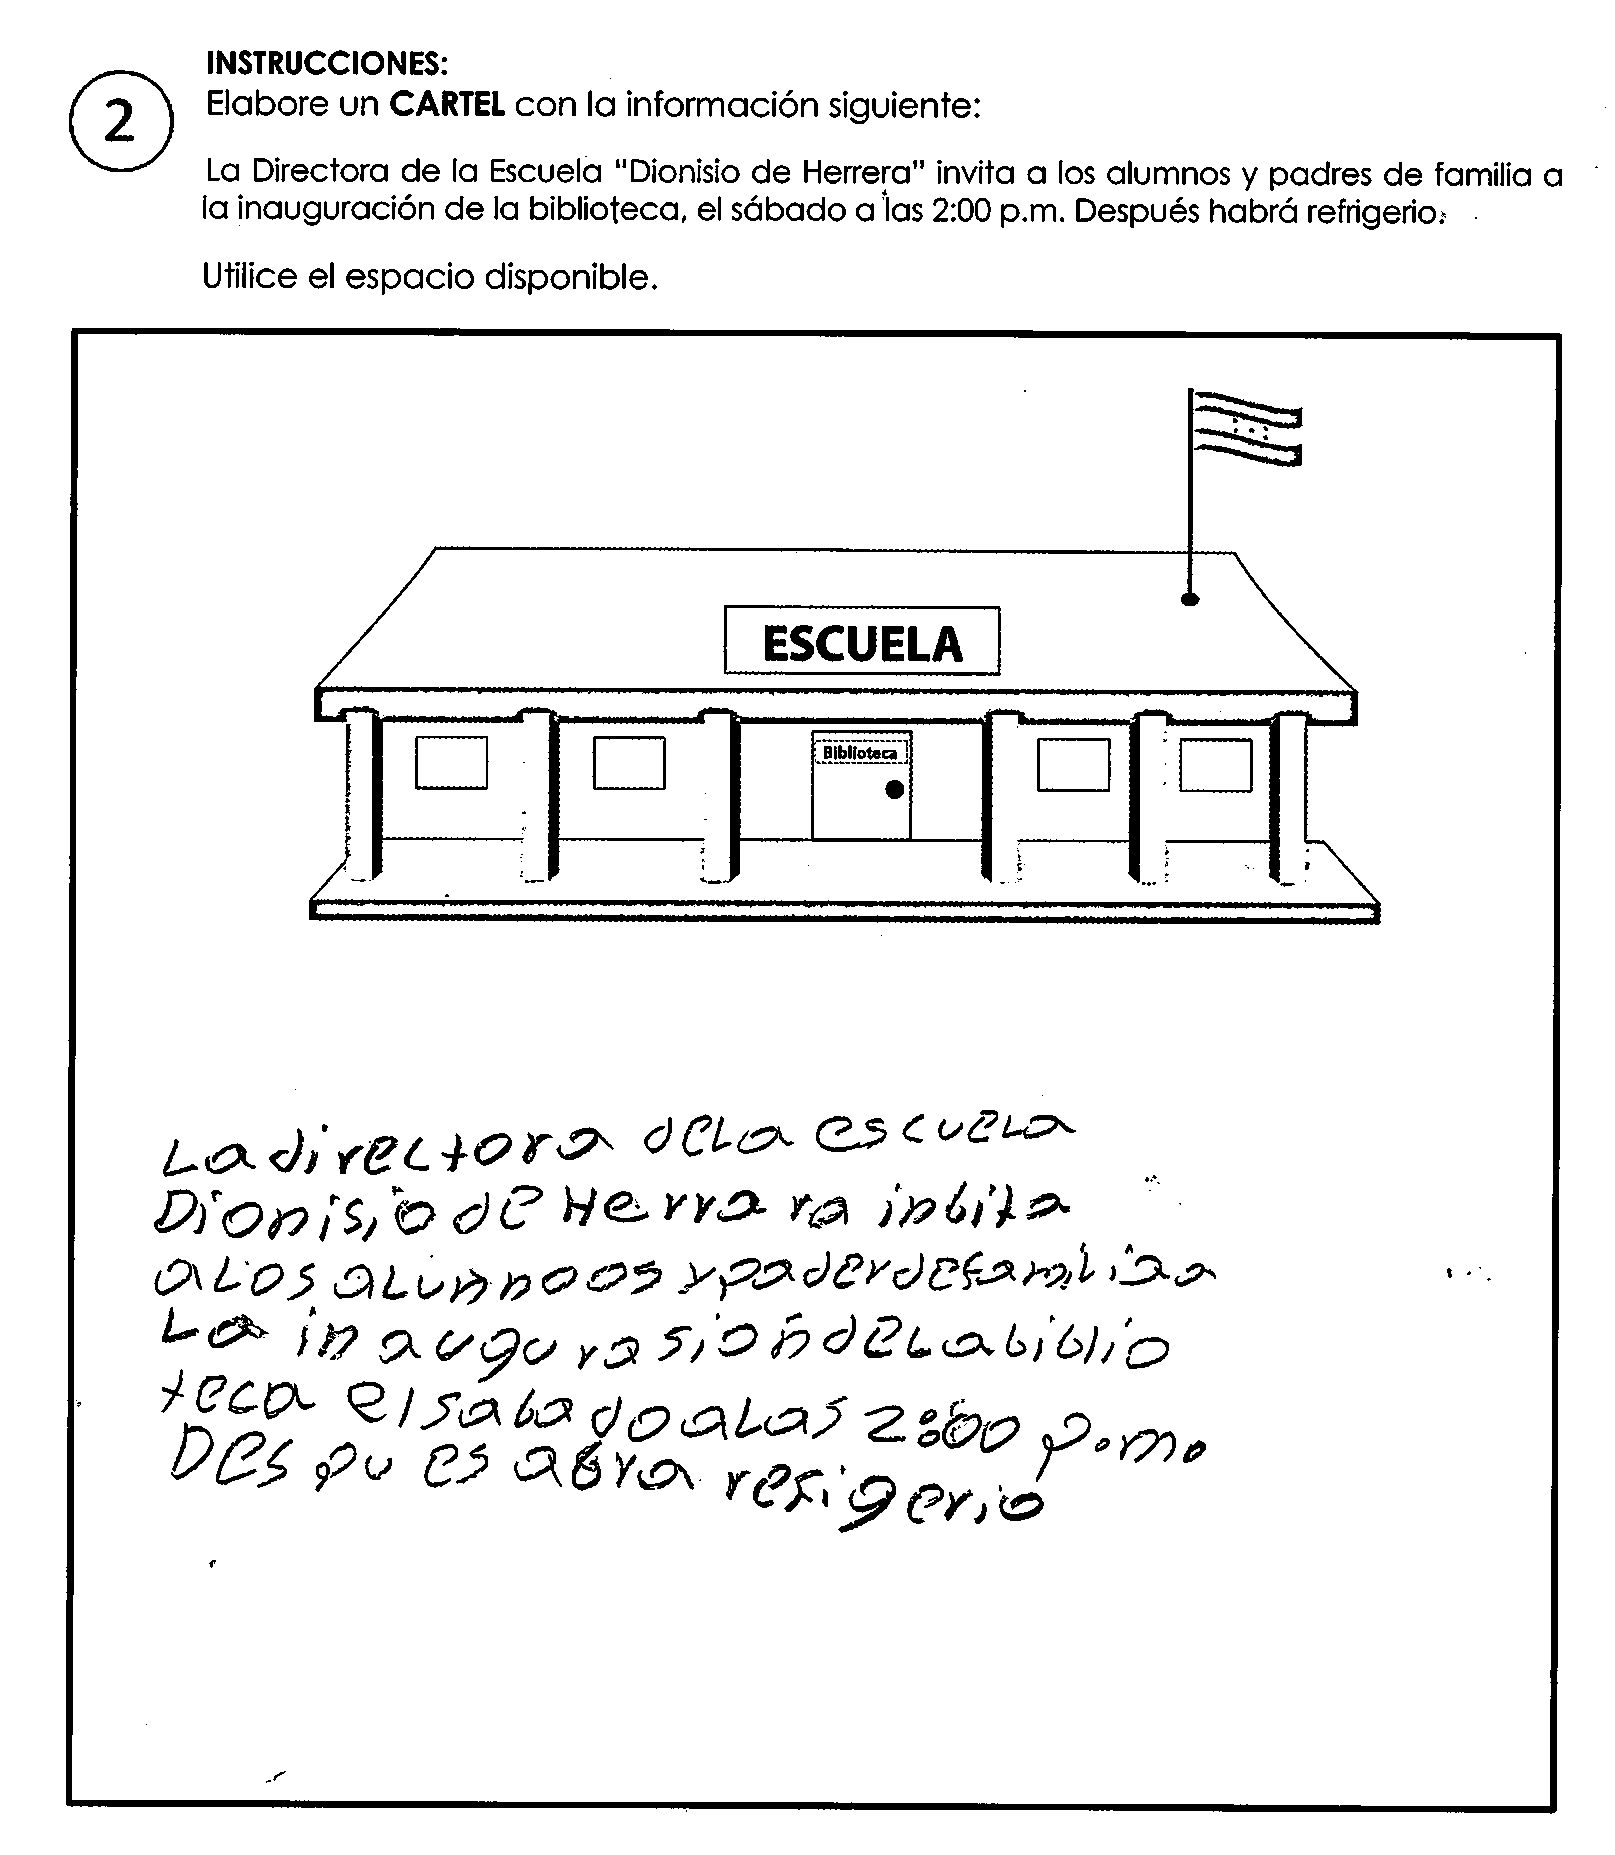 INSTRUCCIONES:
2
Elabore un CARTEL con la información siguiente:
La Directora de la Escuela "Dionisio de Herrera" invita a los alumnos y padres de familia a
la inauguración de la biblioteca, el sábado a las 2:00 p.m. Después habrá refrigerio.
Utilice el espacio disponible.
ESCUELA
Biblioteca
La directora dela escuela
Dionisio de Herrra ra inbita
a los alumnoos y pader de familia a
La inaugurasion dela biblio
teca el sabado a las 2:00 p.m.
Des pu es abra refigerio